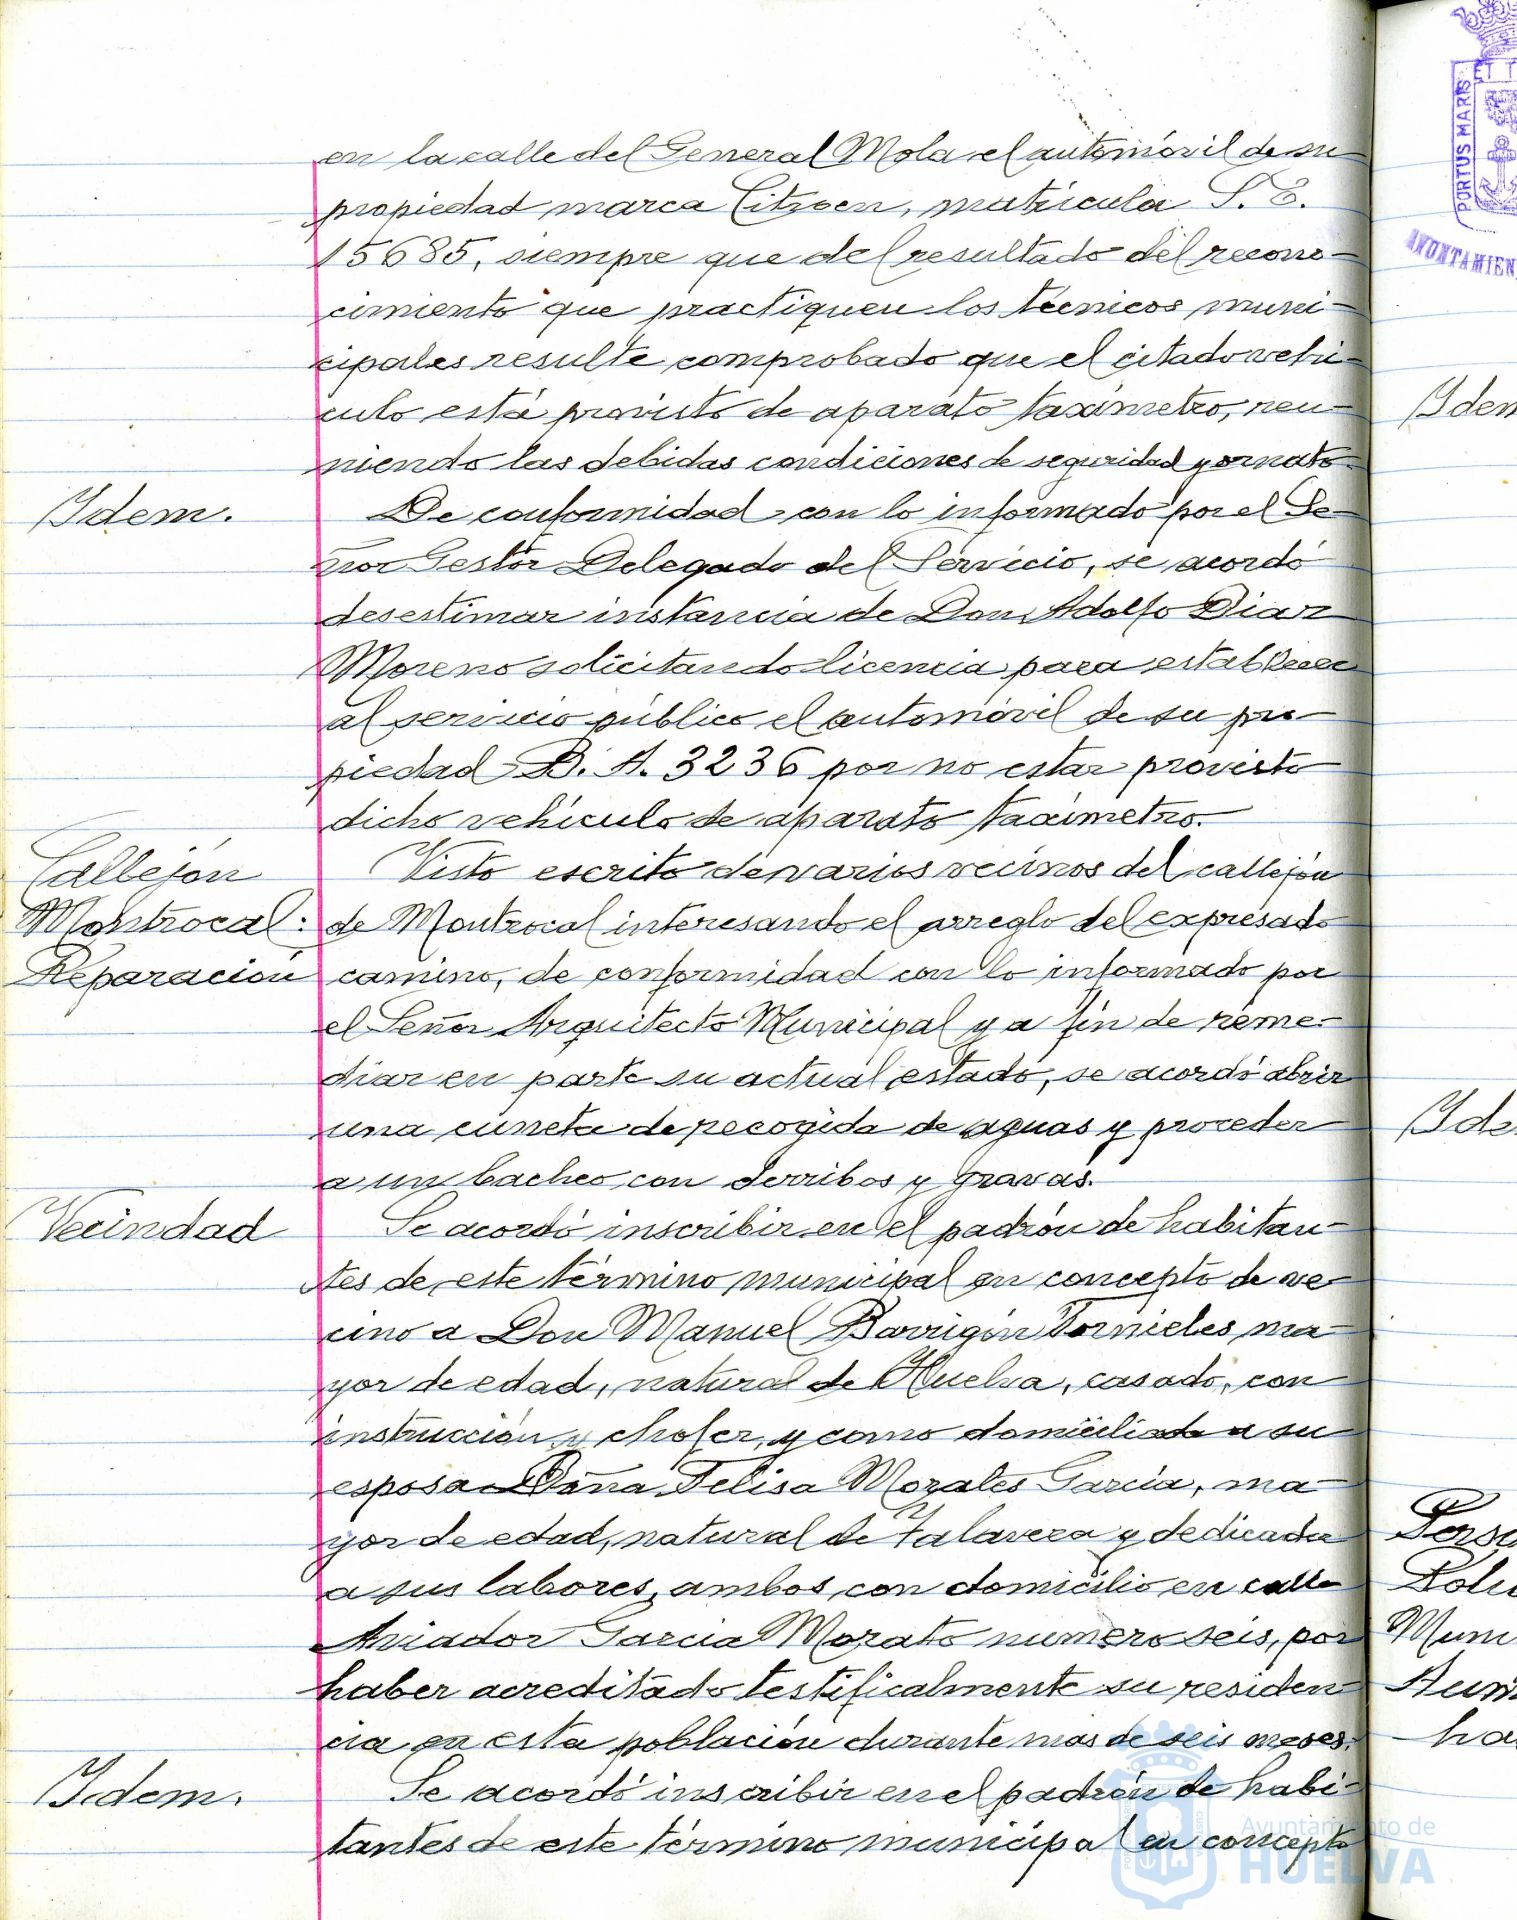 en la calle del General Mola el automóvil de su
propiedad marca Citroen, matrícula S. E.
15685, siempre que del resultado del recono-
cimiento que practiquen los técnicos muni-
cipales resulte comprobado que el citado vehí-
culo está provisto de aparato taxímetro, reu-
niendo las debidas condiciones de seguridad y ornato.
Idem.
De conformidad con lo informado por el Se-
ñor Gestor Delegado del Servicio, se acordó
desestimar instancia de Don Adolfo Diaz
Moreno solicitando licencia para establecer
al servicio público el automóvil de su pro-
piedad B. A. 3236 por no estar provisto
dicho vehículo de aparato taxímetro.
Callejón
Montrocal:
Reparación
Visto escrito de varios vecinos del callejón
de Montrocal interesando el arreglo del expresado
camino, de conformidad con lo informado por
el Señor Arquitecto Municipal y a fin de reme-
diar en parte su actual estado, se acordó abrir
una cuneta de recogida de aguas y proceder
a un bacheo con derribos y gravas.
Vecindad
Se acordó inscribir en el padrón de habitan-
tes de este término municipal en concepto de ve-
cino a Don Manuel Barrigón Tornieles ma-
yor de edad, natural de Huelva, casado, con
instrucción y chofer, y como domiciliada a su
esposa Doña Felisa Morales García, ma-
yor de edad, natural de Talavera y dedicada
a sus labores, ambos con domicilio en calle
Aviador Garcia Morato numero seis, por
haber acreditado testificalmente su residen-
cia en esta población durante mas de seis meses.
Idem.
Se acordó inscribir en el padrón de habi-
tantes de este término municipal en concepto
Ayuntamiento de
HUELVA
PORTUS MARIS
ET T
AYUNTAMIEN
Idem
Ide
Perso
Muni
ha